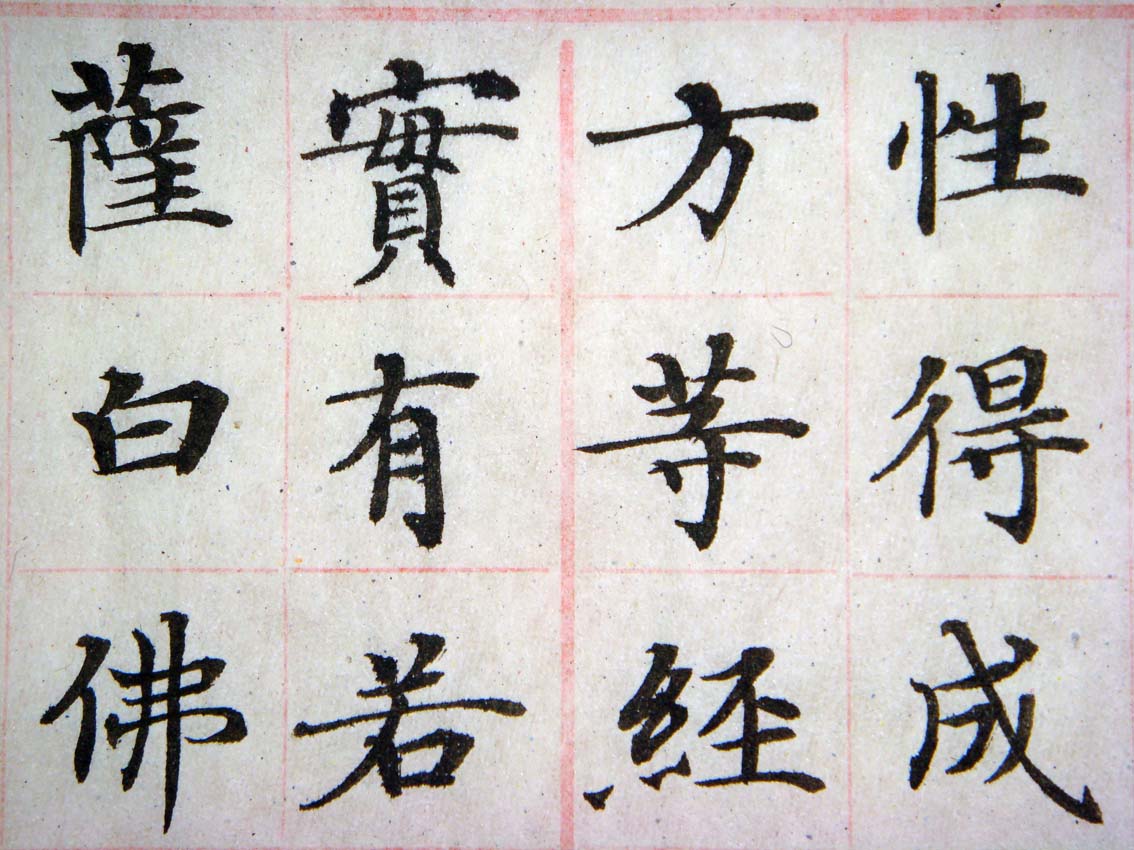 性得成
方等経
實有若
薩白佛